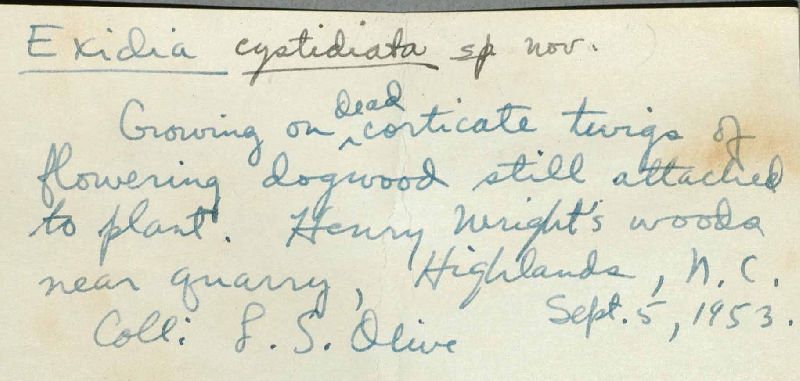 Exidia cystidiata sp nov.
Growing on dead corticate twigs of
flowering dogwood still attached
to plant. Henry Wright's woods
near quarry, Highlands, N.C.
Coll: L. S. Olive Sept. 5, 1953.